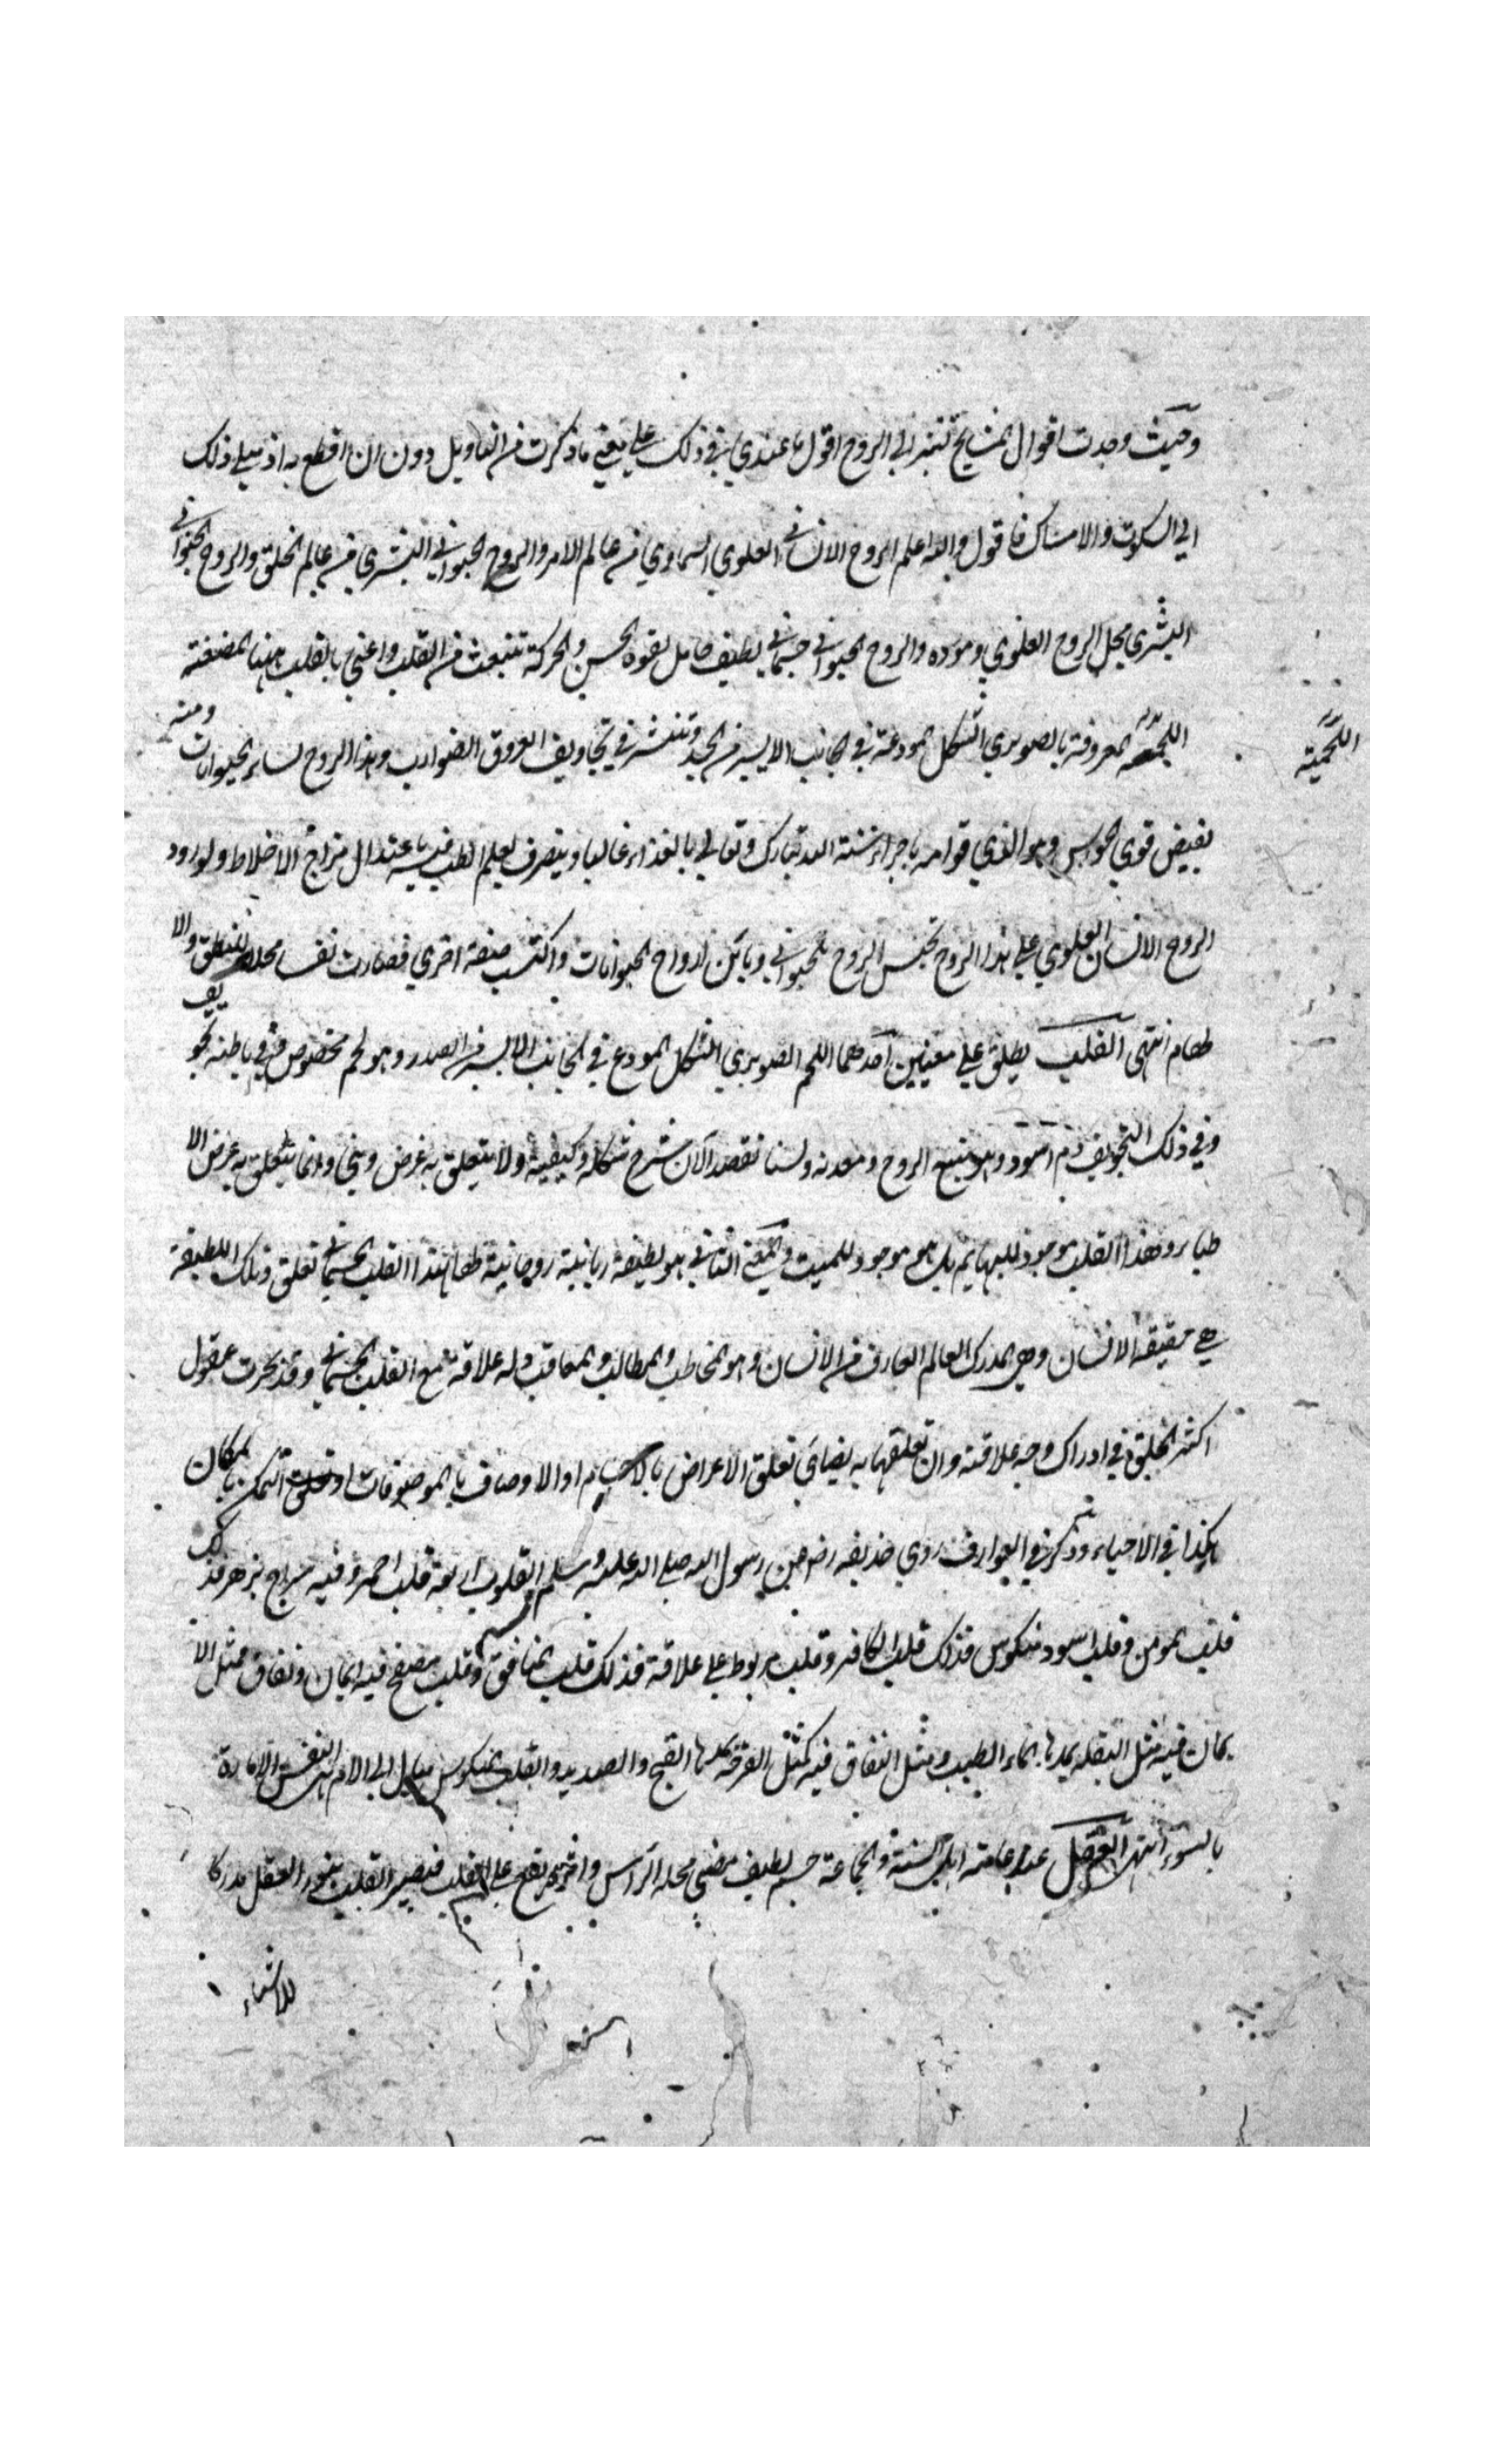 وحيث وجدت اقوال المشايخ تشير الي الروح اقول ما عندي في ذلك علي معني ما ذكرت من التاويل دون ان اقطع به اذ ميلي ذلك
الي السكوت والامساك فاقول والله اعلم الروح الانساني العلوي السماوي من عالم الامر والروح الحيواني البشري من عالم الخلق والروح الحيواني
البشري محل الروح العلوي ومورده والروح الحيواني جسماني لطيف حامل لقوة الحس والحركة تنبعث من القلب واعني بالقلب ههنا المضغة
اللحمية المعروفة بالصنوبري الشكل المودعة في الجانب الايسر من الجسد وتنتشر في تجاويف العروق الضوارب وهذا الروح لسائر الحيوانات ومنه
اللحمية
تفيض قوي الحواس وهو الذي قوامه باجراء سنة الله تبارك وتعالي بالغذاء غالبا ويتصرف بعلم الطب فيه باعتدال مزاج الاخلاط ولورود
الروح الانساني العلوي علي هذا الروح تجنس الروح الحيواني وباين ارواح الحيوانات واكتسب صفة اخري فصارت نفسا محلا للنطق والا
لهام انتهي القلب يطلق علي معنيين احدهما اللحم الصنوبري الشكل المودع في الجانب الايسر من الصدر وهو لحم مخصوص وفي باطنه تجو يف
وفي ذلك التجويف دم اسود وهو منبع الروح ومعدنه ولسنا نقصد الآن شرح شكله وكيفيته ولا يتعلق به غرض ديني وانما يتعلق به غرض الا
طباء وهذا القلب موجود للبهايم بل هو موجود للميت والمعني الثاني هو لطيفة ربانية روحانية لها بهذا القلب الجسماني تعلق وتلك اللطيفة
هي حقيقة الانسان وهي المدرك العالم العارف من الانسان وهو المخاطب والمطالب والمعاقب وله علاقة مع القلب الجسماني وقد تحيرت عقول
اكثر الخلق في ادراك وجه علاقته وان تعلقها به يضاهي تعلق الاعراض بالاجسام او الاوصاف بالموصوفات او تعلق المتمكن بالمكان
هكذا في الاحياء وذكر في العوارف روي حذيفه رضه عن رسول الله صلي الله عليه وسلم القلوب اربعة قلب اجرد فيه سراج يزهر فذلك
قلب المومن وقلب اسود منكوس فذلك قلب الكافر وقلب مربوط علي علاقة فذلك قلب المنافق وقلب مصفح فيه ايمان ونفاق مثل الا
يمان فيه مثل البقلة يمدها الماء الطيب ومثل النفاق فيه كمثل القرحة يمدها القيح والصديد والقلب المنكوس ميال الي الام النفس الامارة
بالسوء انتهي العقل عند عامة اهل السنة والجماعة جسم لطيف مضي محله الراس واثره يقع علي القلب فيصير القلب بنور العقل مدركا
للاشياء